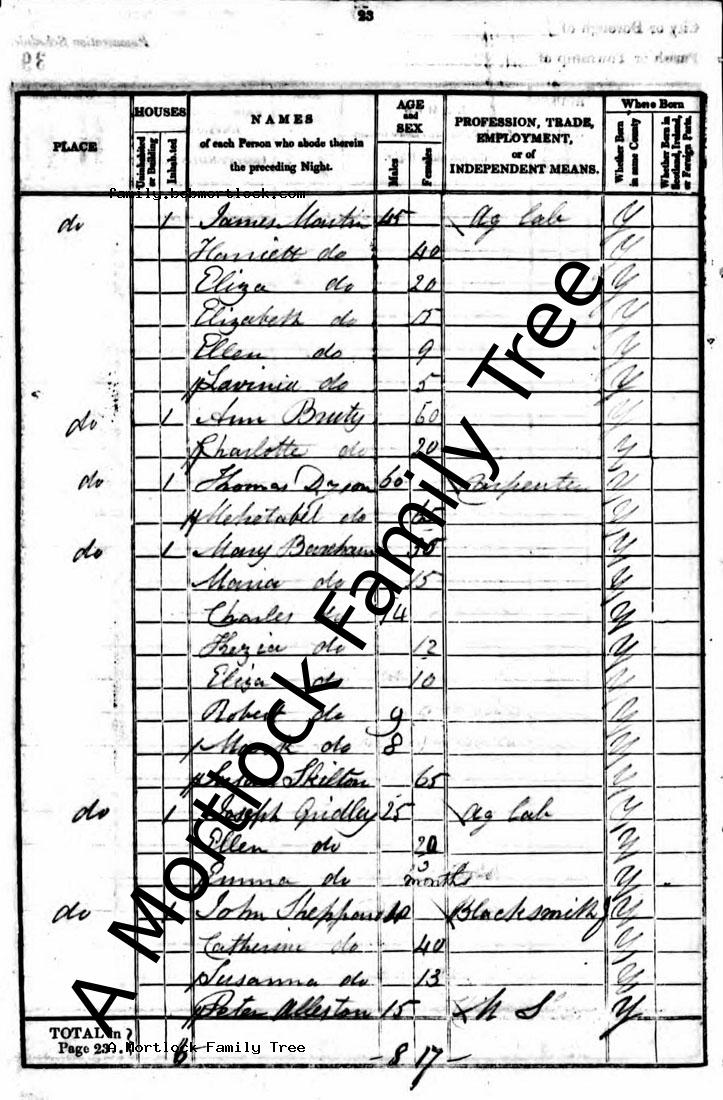 23
City or Borough of
Parish or Township of
Enumeration Schedule
39
PLACE
HOUSES
Uninhabited or Building
Inhabited
NAMES
of each Person who abode therein
the preceding Night.
AGE
and
SEX
Males
Females
PROFESSION, TRADE,
EMPLOYMENT,
or of
INDEPENDENT MEANS.
Where Born
Whether Born in same County
Whether Born in Scotland, Ireland, or Foreign Parts.
family.bobmortlock.com
do 1 James Martin 45 Ag Lab y
Harriett do 40 y
Eliza do 20 y
Elizabeth do 15 y
Ellen do 9 y
Lavinia do 5 y
do 1 Ann Bruty 60 y
Charlotte do 20 y
do 1 Thomas Dyson 60 Carpenter
Mehetabel do y
do 1 Mary y
Maria do 15 y
Charles do 14 y
Kezia do 12 y
Eliza do 10 y
Robert do 9 y
Mark do 8 y
Susan Skilton 65 y
do 1 Joseph Gridley 25 Ag Lab y
Ellen do 20 y
Emma do 3 months y
do 1 John Sheppard 40 Blacksmith y
Catherine do 40 y
Susanna do 13 y
Peter Alleston 15 M S y
TOTAL in
Page 23 6 8 17
A Mortlock Family Tree
A Mortlock Family Tree